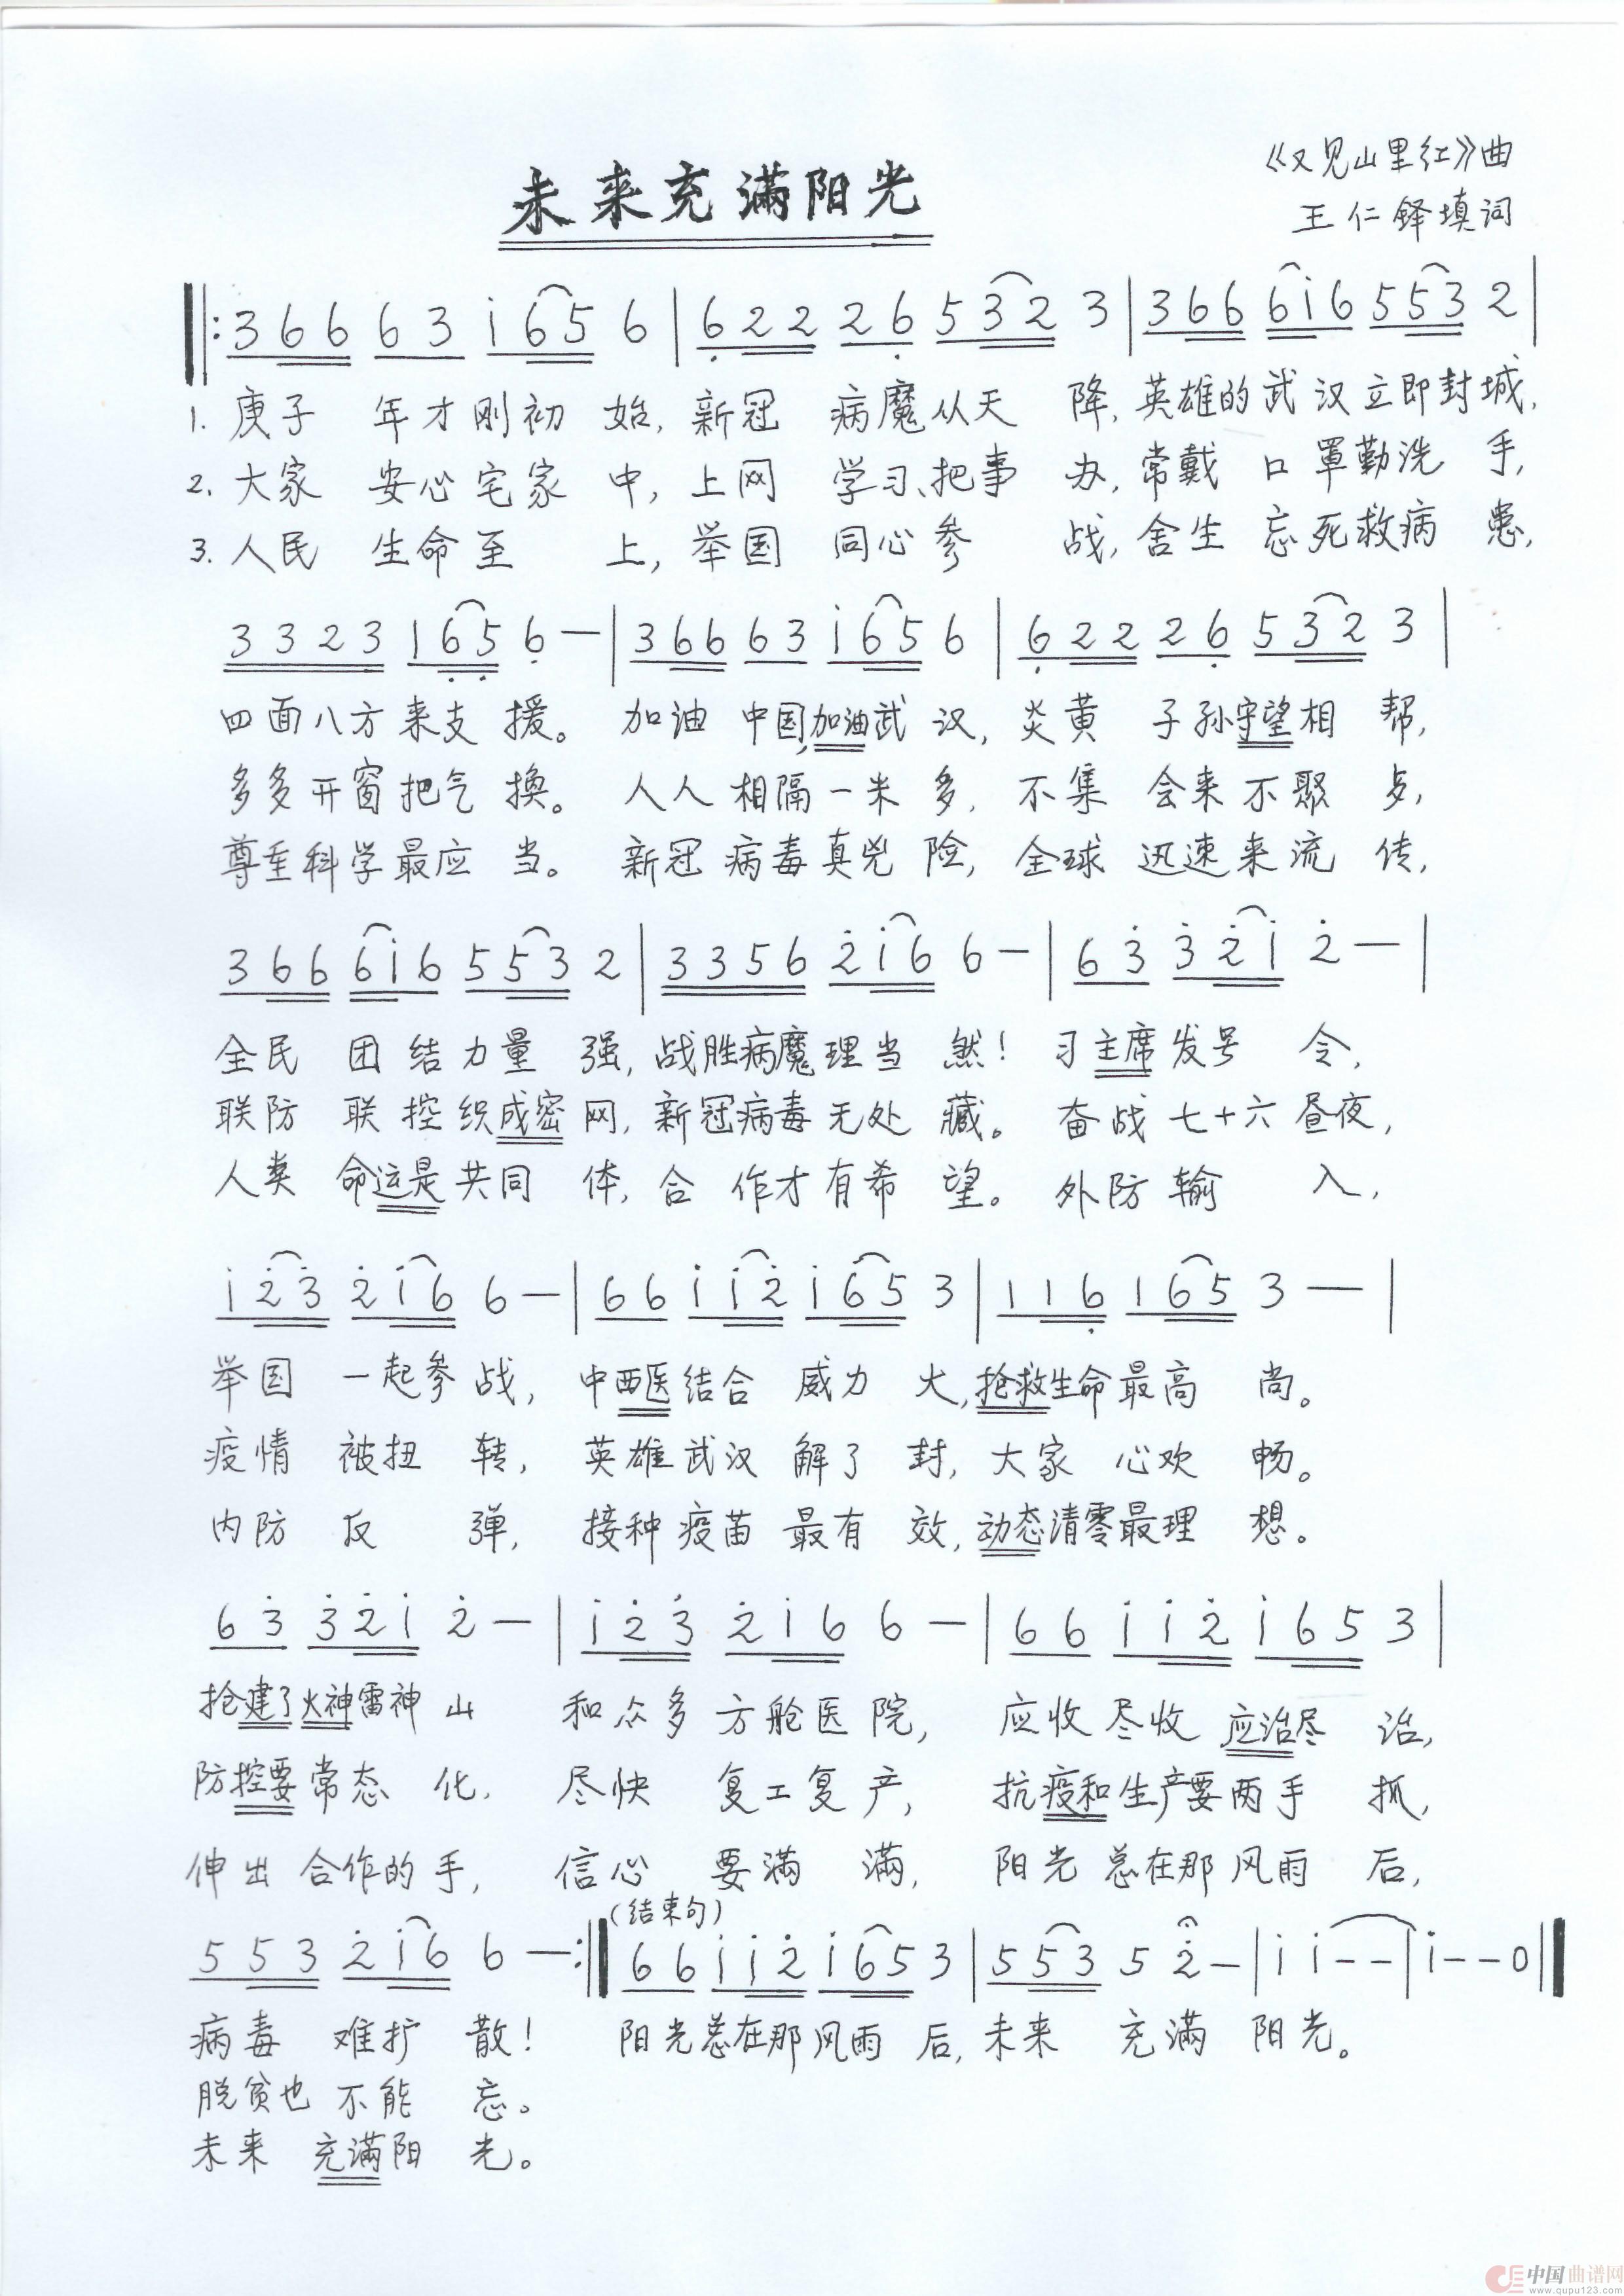 《又见山里红》曲
未来充满阳光
王仁铎填词
3 6 6 6 3 i 6 5 6 | 6 2 2 2 6 5 3 2 3 | 3 6 6 6 i 6 5 5 3 2 |
1. 庚子 年才刚初 始, 新冠 病魔从天 降, 英雄的武汉立即封城,
2. 大家 安心宅家 中, 上网 学习、把事 办, 常戴 口罩勤洗 手,
3. 人民 生命至 上, 举国 同心参 战, 舍生 忘死救病 患,
3 3 2 3 1 6 5 6 — | 3 6 6 6 3 i 6 5 6 | 6 2 2 2 6 5 3 2 3 |
四面八方来支 援。 加油 中国,加油武 汉, 炎黄 子孙守望相 帮,
多多开窗把气 换。 人人 相隔一米 多, 不集 会来不聚 
尊重科学最应 当。 新冠 病毒真凶 险, 全球 迅速来流 传,
3 6 6 6 i 6 5 5 3 2 | 3 3 5 6 2 i 6 6 — | 6 3 3 2 i 2 — |
全民 团结力量 强, 战胜病魔理当 然! 习主席发号 令,
联防 联控织成密 网, 新冠病毒无处 藏。 奋战 七十六昼夜,
人类 命运是共同 体, 合 作才有希 望。 外防输 入,
i 2 3 2 i 6 6 — | 6 6 i i 2 i 6 5 3 | 1 1 6 1 6 5 3 — |
举国 一起参 战, 中西医结合 威力 大, 抢救生命最高 尚。
疫情 被扭 转, 英雄武汉 解了 封, 大家 心欢 畅。
内防 反 弹, 接种疫苗 最有 效, 动态清零最理 想。
6 3 3 2 i 2 — | i 2 3 2 i 6 6 — | 6 6 i i 2 i 6 5 3 |
抢建了火神雷神 山 和众多 方舱医 院, 应收尽收 应治尽 治,
防控要常态 化, 尽快 复工复 产, 抗疫和生产要两手 抓,
伸出 合作的手, 信心 要满 满, 阳光总在那风雨 后,
(结束句)
5 5 3 2 i 6 6 — :| 6 6 i i 2 i 6 5 3 | 5 5 3 5 2 — | i i - - | i - - 0 |
病毒 难扩 散! 阳光总在那风雨 后, 未来 充满 阳光。
脱贫也 不能 忘。
未来 充满阳 光。
中国曲谱网
www.qupu123.com